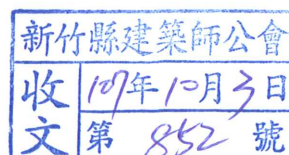 新竹縣建築師公會
收文
107年10月3日
第852號